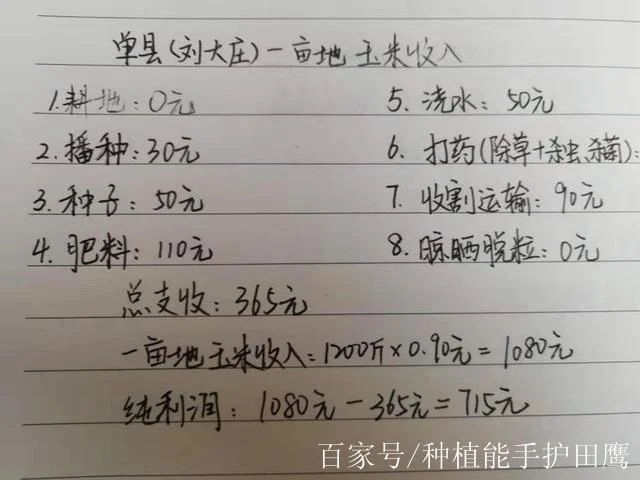 单县(刘大庄)一亩地玉米收入
1.耕地:0元
5.浇水:50元
2.播种:30元
6.打药(除草+杀虫、杀菌):
3.种子:50元
7.收割运输:90元
4.肥料:110元
8.晾晒脱粒:0元
总支收:365元
一亩地玉米收入:1200斤×0.90元=1080元
纯利润:1080元-365元=715元
百家号/种植能手护田鹰